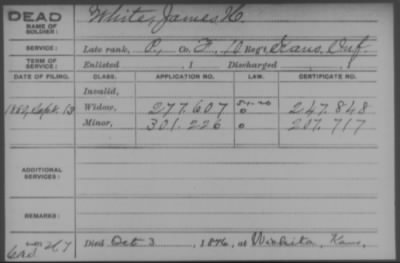 DEAD
NAME OF SOLDIER: White, James H.
SERVICE: Late rank, P, Co. F, 10 Reg't Kans. Inf.
TERM OF SERVICE: Enlisted , 1 Discharged , 1
DATE OF FILING. CLASS. APPLICATION NO. LAW. CERTIFICATE NO.
Invalid,
Sept. 13 Widow, 277.607 247.848
Minor, 301.226 o 207.717
ADDITIONAL SERVICES:
REMARKS:
Died Oct 3, 1876, at Wichita, Kans.